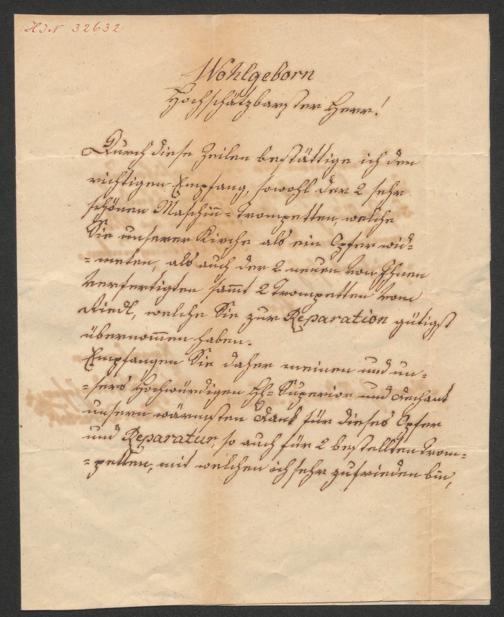 HIN 32632
Wohlgeborn
Hochschätzbarster Herr!
Durch diese Zeilen bestättige ich den
richtigen Empfang, sowohl der 2 sehr
schönen Maschin-Trompetten, welche
Sie unserer Kirche als ein Opfer wid-
-meten, als auch der 2 neuen von Ihnen
verfertigten sammt 2 Trompetten vom
Riedl, welche Sie zur Reparation gütigst
übernommen haben.
Empfangen Sie daher meinen und un-
-sers Hochwürdigen H= Superior und Dechant
unsern wärmsten Dank für dieses Opfer
und Reparatur so auch für 2 bestellten Trom-
-petten, mit welchen ich sehr zufrieden bin,